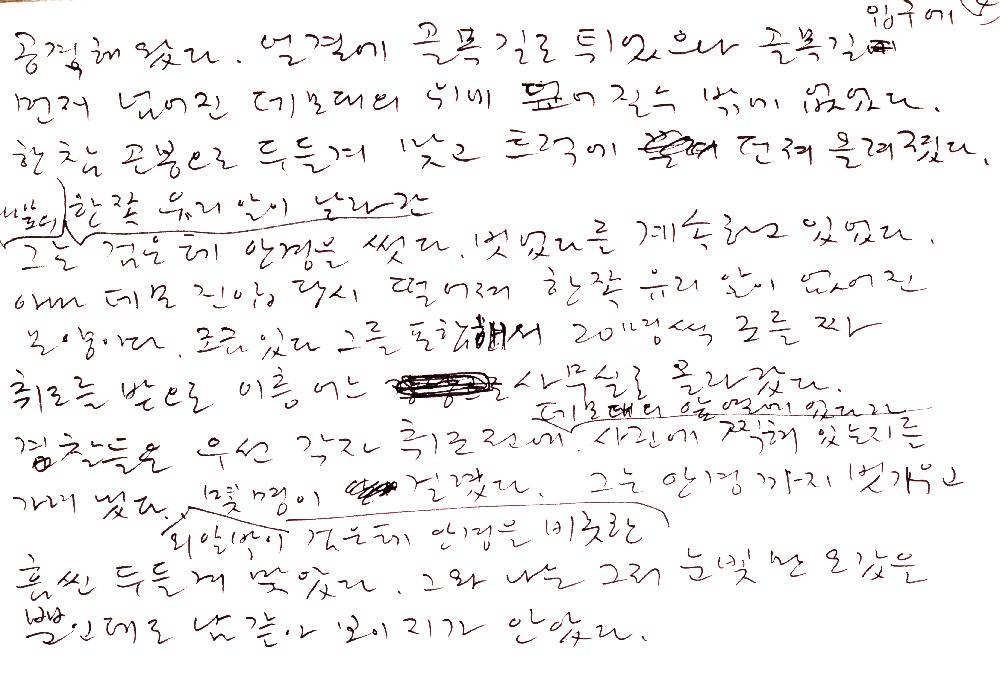 입구에 4
공격해 왔다. 얼결에 골목길로 튀었으나 골목길
먼저 넘어진 데모대의 위에 넘어질수 밖에 없었다.
한참 곤봉으로 두들겨 맞고 트럭에 던져 올려졌다.
한쪽 유리알이 날라간
그는 검은테 안경을 썼다. 벗었다를 계속하고 있었다.
아마 데모 진압 당시 떨어져 한쪽 유리알이 없어진
모양이다. 조금있다 그를 포함해서 20여명씩 조를 짜
취조를 받으로 이층 어느 사무실로 올라갔다.
데모대의 앞열에 있었다가
경찰들은 우선 각자 취조전에 사진에 찍혀 있는지를
가려 냈다. 몇명이 걸렸다. 그는 안경 까지 벗기우고
외알박이 검은테 안경을 비롯한
흠씬 두들겨 맞았다. 그와 나는 그저 눈빛만 오갔을
뿐인데도 남같아 보이지가 안았다.